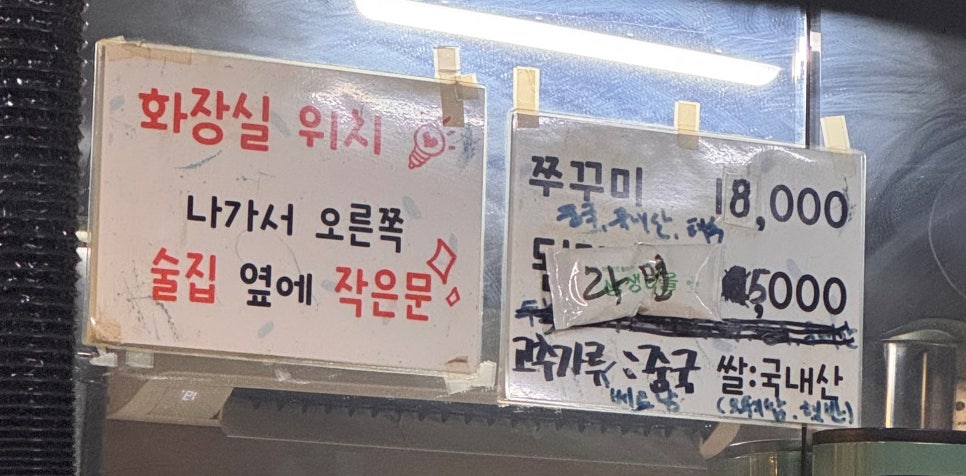 화장실 위치
나가서 오른쪽
술집 옆에 작은문
쭈꾸미 18,000
중국, 국내산, 태국
라면 5000
고춧가루:중국 쌀:국내산
베트남